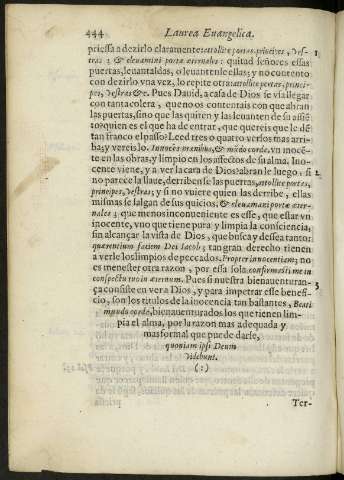 444 Laurea Euangelica.
priessa a dezirlo claramente: attollite portas principes, vestras 1
tras; & eleuamini portæ æternales: quitad señores essas
puertas, leuantaldas, o leuantenle ellas; y no contento
con dezirlo vna vez, lo repite otra: attollite portas, princi-
pes, vestras &c. Pues Dauid, a casa de Dios se via llegar
con tanta colera, que no os contentais con que abran
las puertas, sino que las quiten y las leuanten de su assié
to? quien es el que ha de entrar, que quereis que le dé
tan franco el passo? Leed tres o quatro verlos mas arri-
ba, y vereislo. Innocēs manibus, & mūdo corde, vn inocē-
te en las obras, y limpio en los affectos de su alma. Ino-
cente viene, y a ver la cara de Dios? abran le luego, si 2
no parece la llaue, derriben se las puertas, attollite portas,
principes, vestras, y si no quien las derribe, ellas
mismas se salgan de sus quicios, & eleuamini portæ æter-
nales; que menos inconueniente es esse, que estar vn
inocente, vno que tiene pura y limpia la consciencia,
sin alcançar la vista de Dios, que busca y dessea tanto:
quærentium faciem Dei Iacob; tan gran derecho tienen
a verle los limpios de peccados. Propter innocentiam; no
es menester otra razon, por essa sola confirmasti me in
conspectu tuo in æternum. Pues si nuestra bienauenturan-
ça consiste en ver a Dios, y para impetrar esse benefi- 3
cio, son los titulos de la inocencia tan bastantes, Beati
mundo corde, bienauenturados los que tienen lim-
pia el alma, por la razon mas adequada y
mas formal que puede darse,
quoniam ipsi Deum
videbunt.
(:)
Ter-